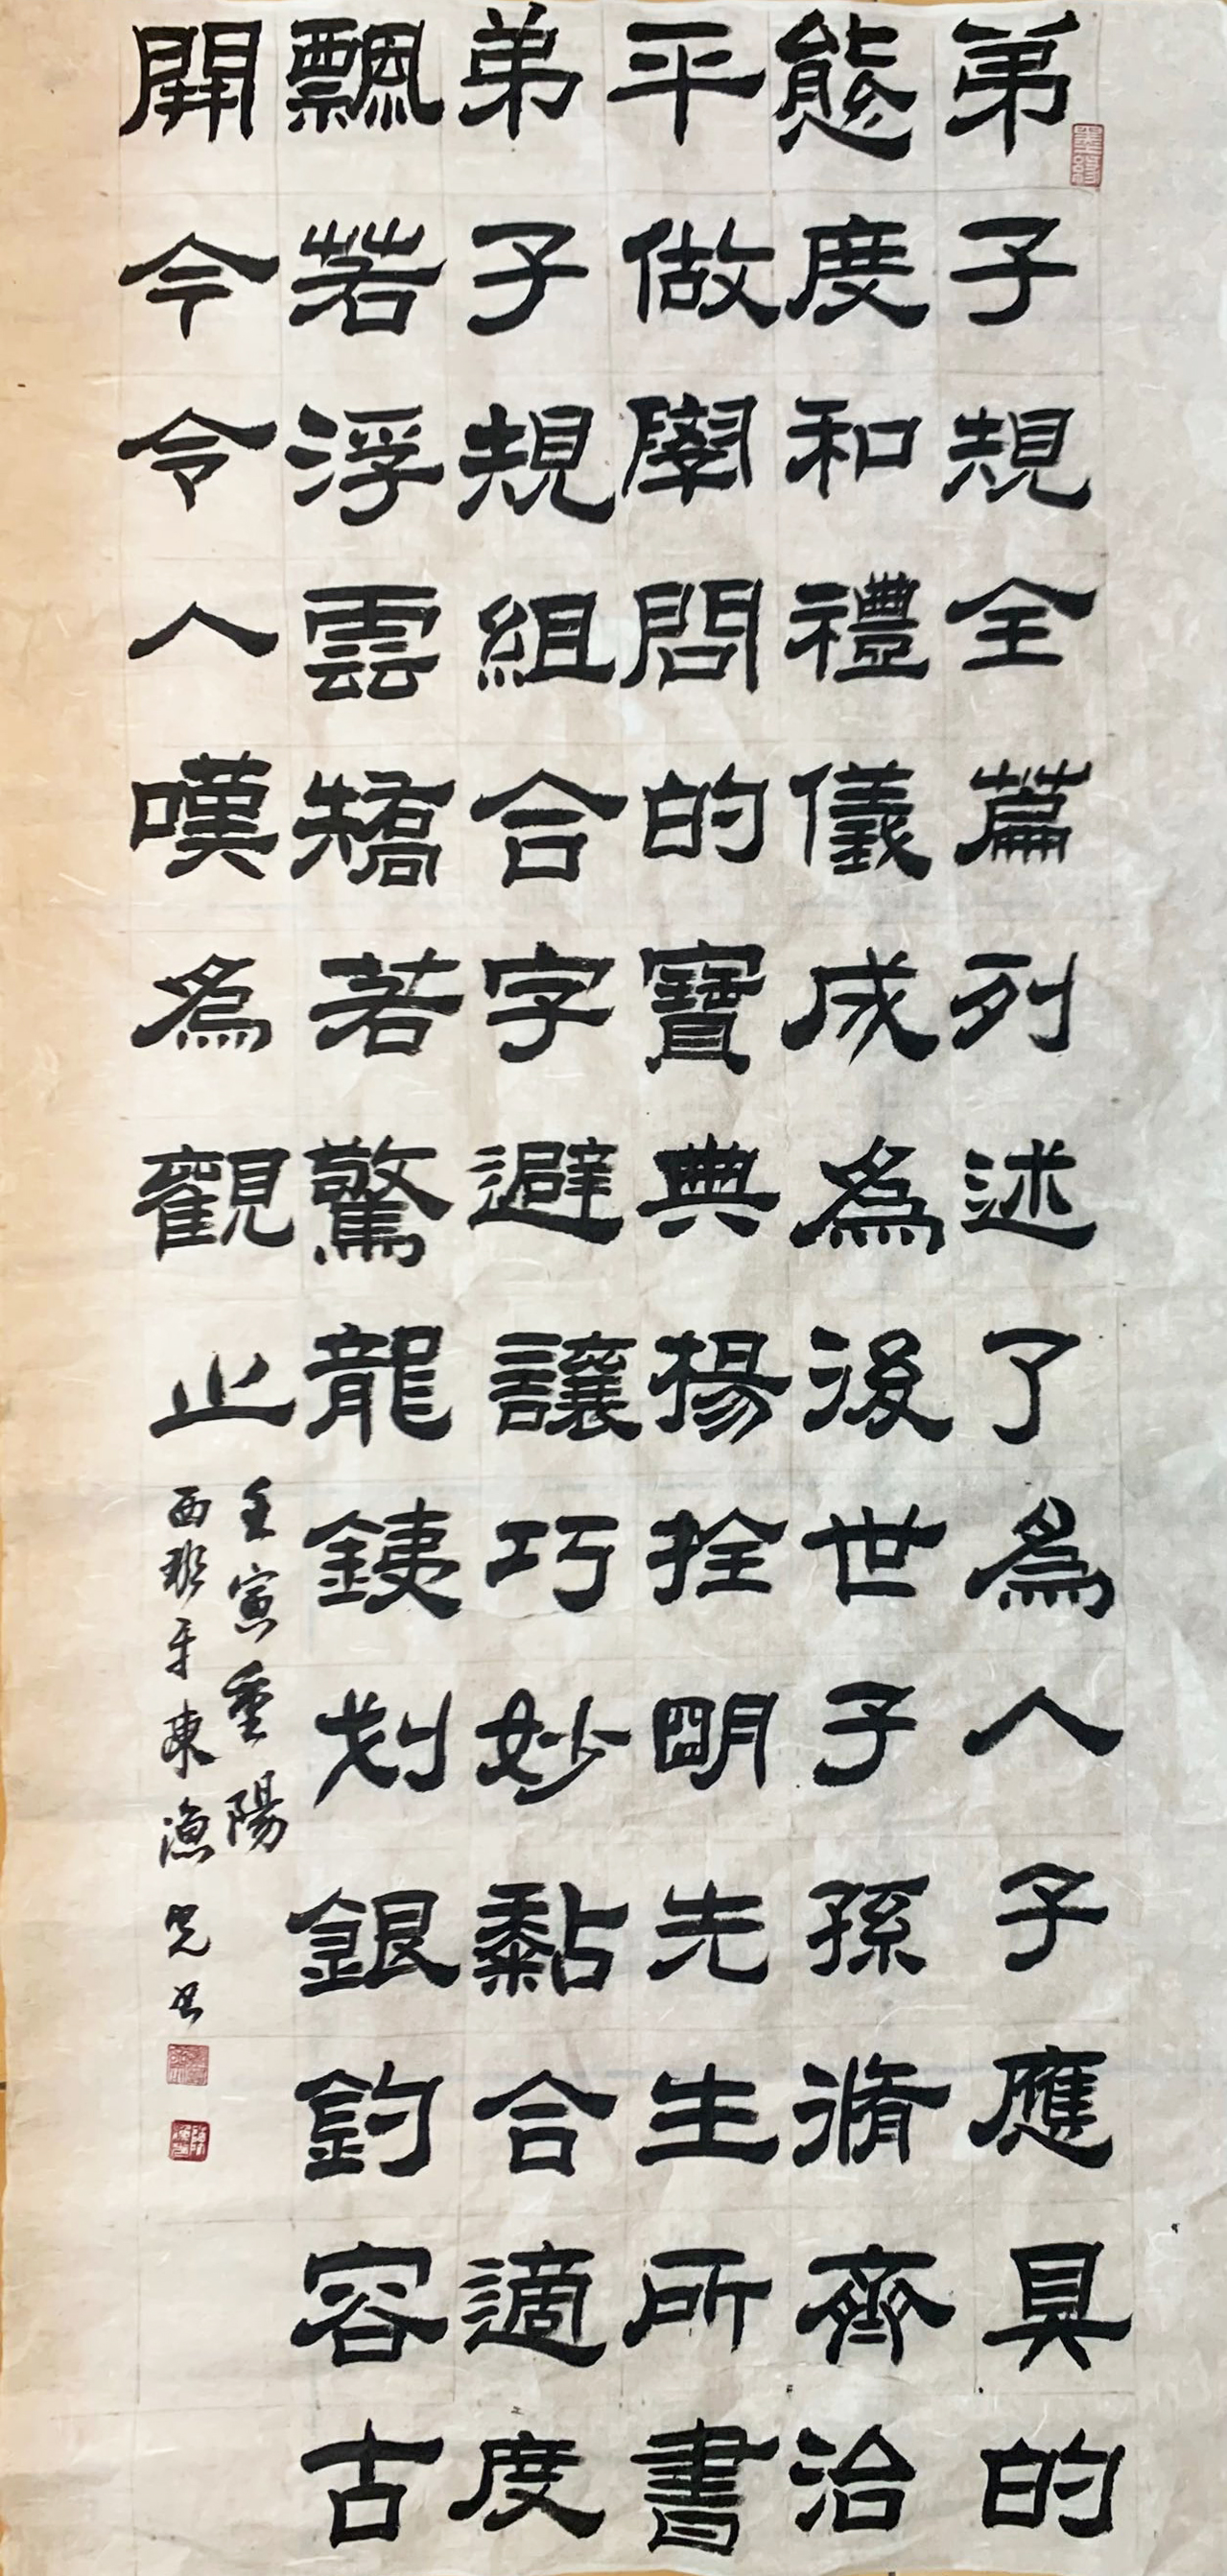 弟子規全篇列述了為人子應具的
態度和禮儀成為後世子孫脩齊治
平做學問的寶典楊拴明先生所書
弟子規組合字避讓巧妙黏合適度
飄若浮雲矯若驚龍銕划銀鈞容古
開今令人嘆為觀止
壬寅重陽
西班牙東漁